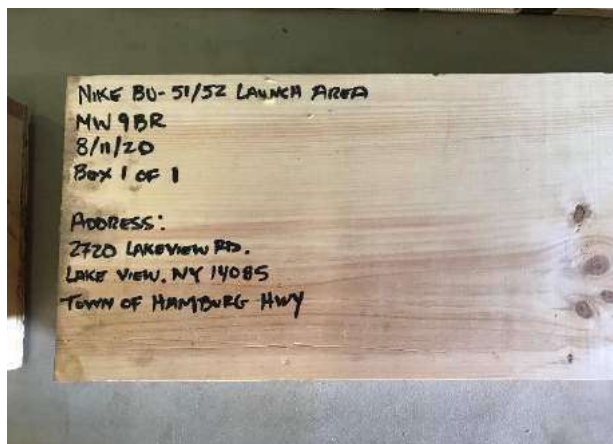 NIKE BU-51/52 LAUNCH AREA
MW 9BR
8/11/20
BOX 1 OF 1
ADDRESS:
2720 LAKEVIEW RD.
LAKE VIEW, NY 14085
TOWN OF HAMBURG HWY